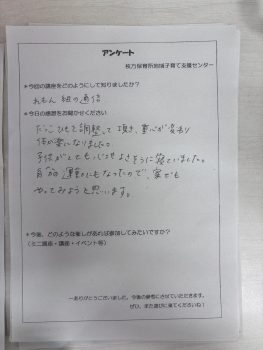 アンケート
枚方保育所地域子育て支援センター
＊今回の講座をどのようにして知りましたか？
れもん組の通信
＊今日の感想をお聞かせください
だっこひもを調整して頂き、重心が変わり
体が楽になりました。
子供がとても心地よさそうに寝ていました。
自分の運動にもなったので、家でも
やってみようと思います。
＊今後、どのような催しがあれば参加してみたいですか？
（ミニ講座・講座・イベント等）
ーありがとうございました。今後の参考にさせていただきます。
ぜひ、また遊びに来てくださいね！